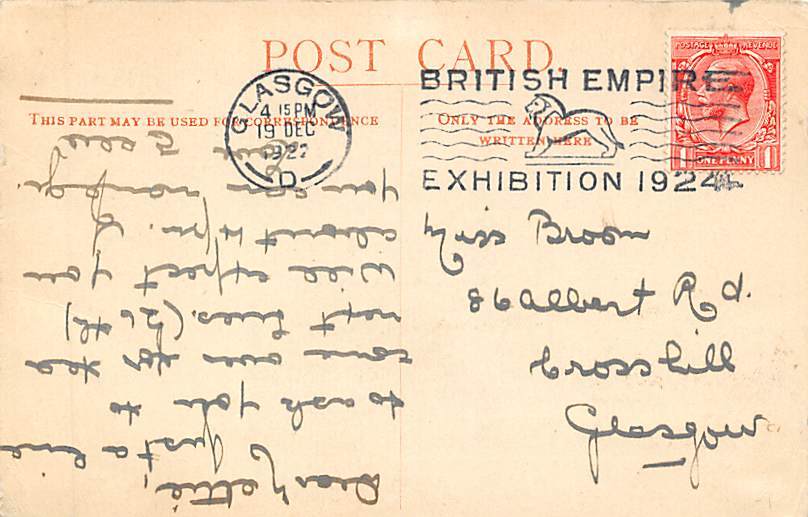 POST CARD.
THIS PART MAY BE USED FOR CORRESPONDENCE
ONLY THE ADDRESS TO BE
WRITTEN HERE
GLASGOW
4 15 PM
19 DEC
1922
D
BRITISH EMPIRE
EXHIBITION 1924
POSTAGE REVENUE
1 ONE PENNY 1
Miss Broom
86 Albert Rd.
Crosshill
Glasgow
Dear Nettie,
Just a line
to ask you to
come over for tea
next Tues. (26th)
Will expect you
about 4 pm. If
you can manage.
Ella